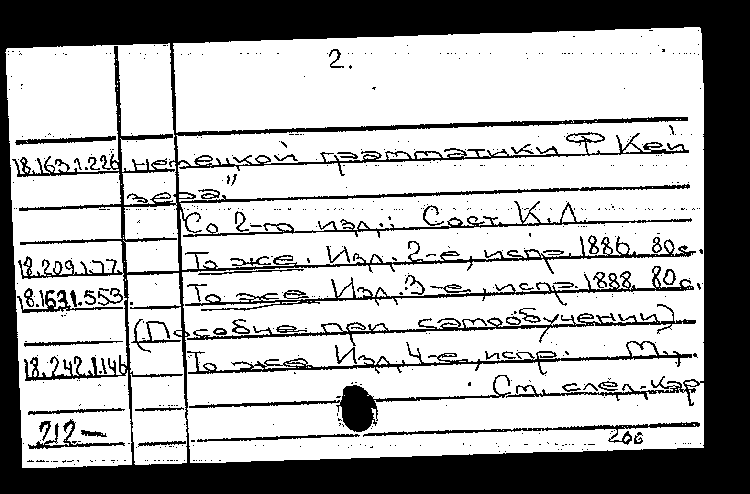 2.
18.163.1.226 немецкой грамматики Ф. Кей
зера."
Со 2-го изд.: Сост. К.Л.
18.209.1.77 То же. Изд. 2-е, испр. 1886. 80с.
18.163 1.553. То же Изд. 3-е, испр. 1888. 80с.
(Пособие при самообучении)
18.242.1.146 То же Изд. 4-е, испр. М.,
См. след. кар
212—
206